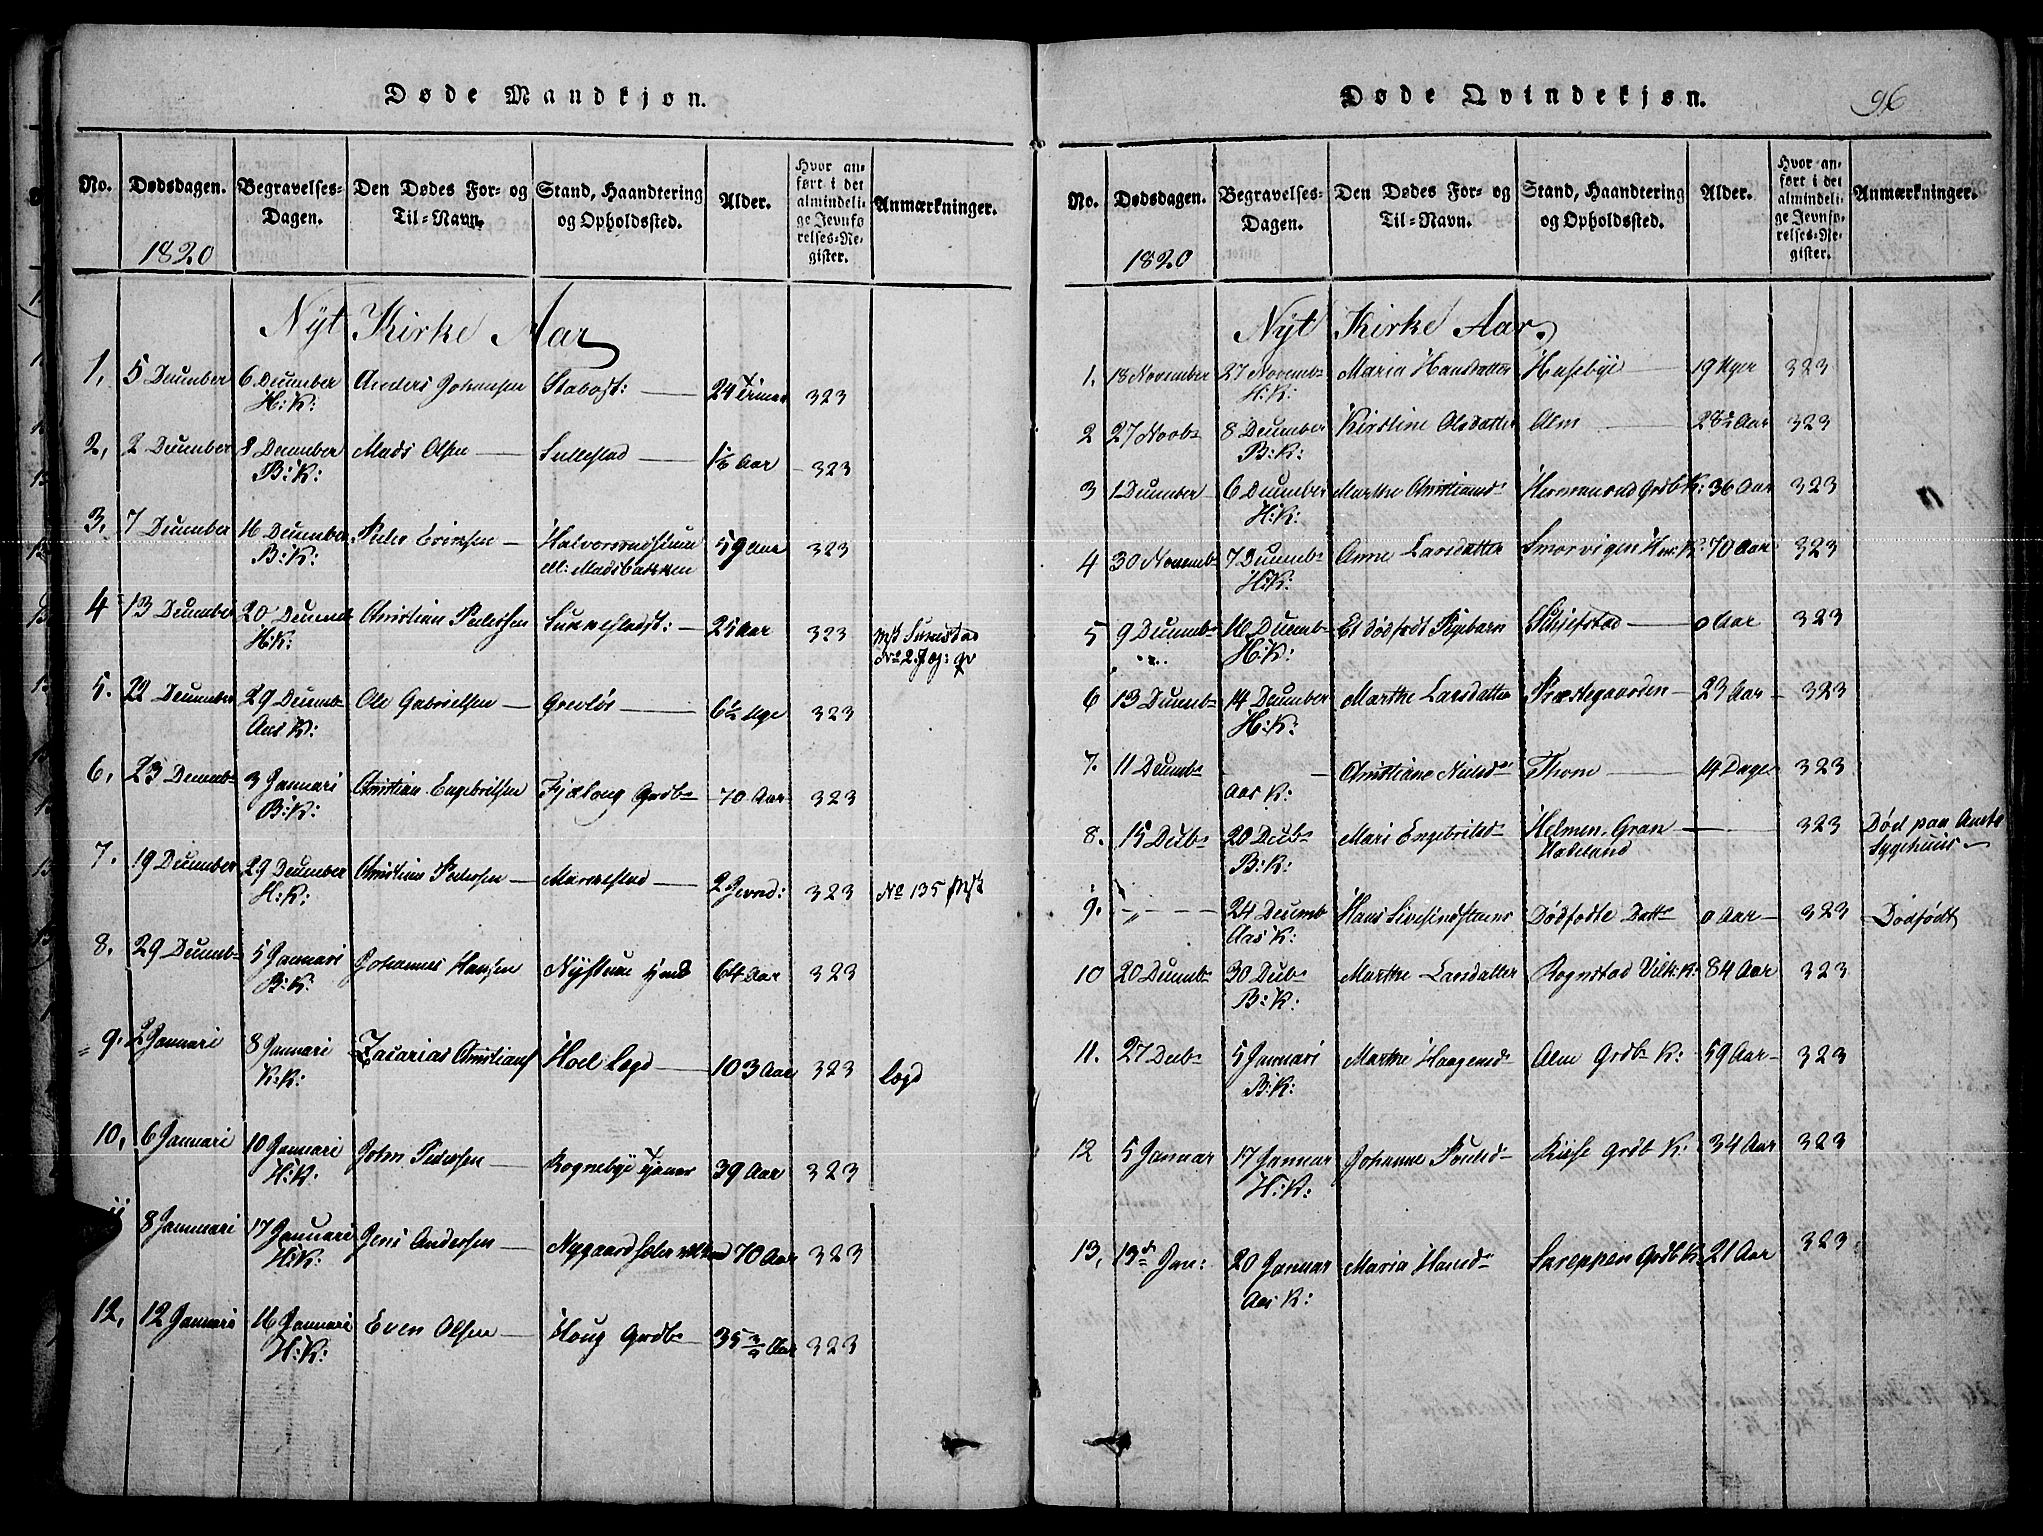 Døde Mandkjøn.
No. Dødsdagen. Begravelses-Dagen. Den Dødes For- og Til-Navn. Stand, Haandtering og Opholdssted. Alder. Hvor anført i det almindelige Jevnførelses-Register. Anmærkninger.
1820
Nyt Kirke Aar
1, 5 December 6 December Anders Johansen 24 Timer 323
H: K:
2, 2 December 8 December Mads Olsen Sullestad 1½ Aar 323
B: K:
3, 7 December 16 December Peder Evensen 59 Aar 323
B: K: Madsbakken
4 13 December 20 Decemb Christian Pedersen 25 Aar 323
H: K:
5. 22 December 29 Decemb Ole Gabrielsen Grevlös 6½ Uge 323
Aas K:
6, 23 Decemb 3 Januari Christian Engebritsen Grdb 70 Aar 323
B: K:
7. 19 December 29 December Christian Pedersen 323 No 135
H: K:
8. 29 Decemb 5 Januari Johannes Hansen 64 Aar 323
B: K:
9. 2 Januari 8 Januari Zacarias Christians Hoel Lægd 103 Aar 323 Lægd
K: K:
10, 6 Januari 10 Januari John Pedersen Rognebye 39 Aar 323
H: K:
11 8 Januari 17 Januari Jens Andersen 70 Aar 323
H: K:
12, 12 Januari 16 Januari Even Olsen Houg Grdb 35 Aar 323
H: K:
Døde Qvindekjøn. 96
No. Dødsdagen. Begravelses-Dagen. Den Dødes For- og Til-Navn. Stand, Haandtering og Opholdssted. Alder. Hvor anført i det almindelige Jevnførelses-Register. Anmærkninger.
1820
Nyt Kirke Aar.
1. 18 November 27 Novemb Maria Hansdatter Hasebye 19 Uger 323
H: K:
2 27 Novb 8 December Kirstine Olsdatter Alm 323
B: K:
3 1 December 6 December Marthe Christiansd 36 Aar 323
H: K:
4 30 Novemb 7 Decemb Anne Larsdatter Smorvigen 70 Aar 323
H: K:
5 9 Decemb 16 Decemb Et Dödfödt Pigebarn 0 Aar 323
H: K:
6 13 Decemb 14 December Marthe Larsdatter Præstegaarden 23 Aar 323
H: K:
7. 11 Decemb Christiane Nielsd Thom 14 Dage 323
Aas K:
8. 15 Decb 20 Decb Mari Engebritsd Helmen Gran 323 Död paa Amts
B: K: Hadeland Sygehuus
9. 24 Decemb Hans Dödfödte Datt 0 Aar 323 Dödfödt
Aas K:
10 20 Decemb 30 Decb Marthe Larsdatter Rognstad 84 Aar 323
B: K:
11. 27 Decb 5 Januari Marthe Haagensd Alm Grdb K: 59 Aar 323
B: K:
12 5 Januar 17 Januar Johanne Poulsd Kiese Grdb K: 34 Aar 323
H: K:
13, 13de Jan: 20 Januar Maria Hansd Skreppen Grdb K: 21 Aar 323
Aas K: